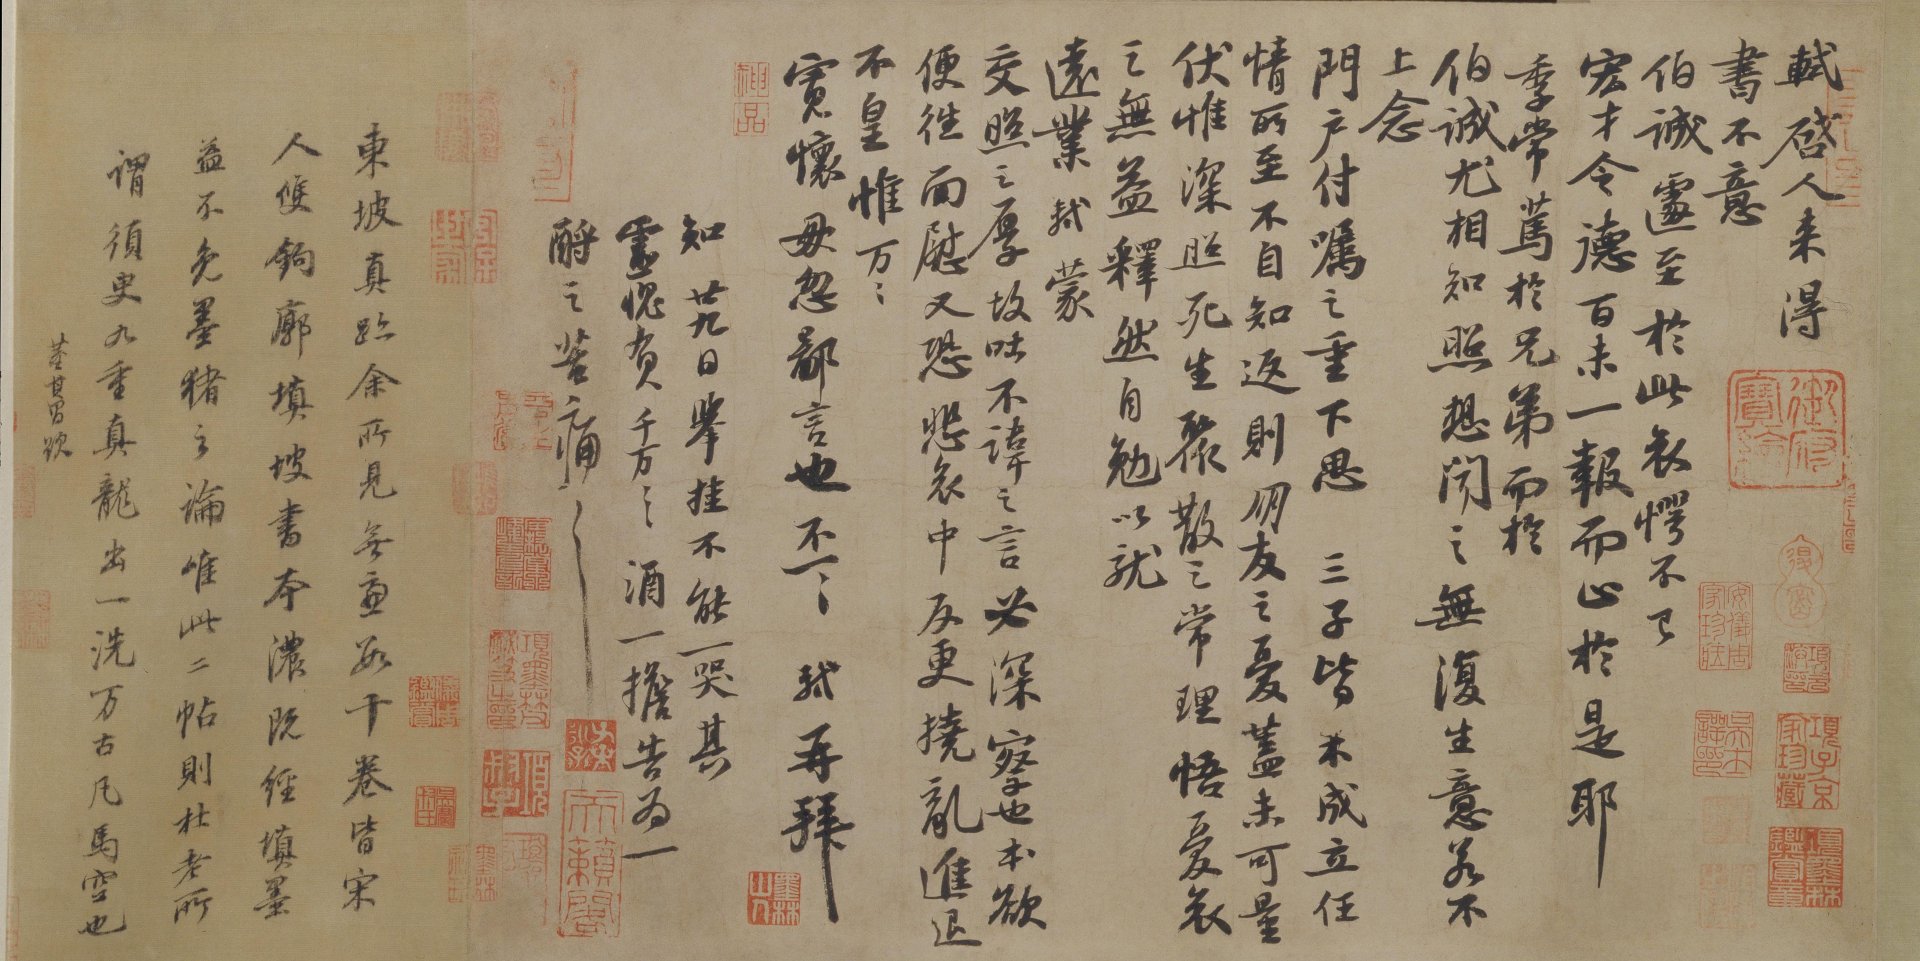 軾啓人来得
書不意
伯誠遽至於此哀愕不已
宏才令德百未一報而止於是耶
季常篤於兄弟而於
伯誠尤相知照想聞之無復生意若不
上念
門户付囑之重下思三子皆未成立任
情所至不自知返則朋友之憂蓋未可量
伏惟深照死生聚散之常理悟憂哀
之無益釋然自勉以就
遠業軾蒙
交照之厚故吐不諱之言必深察也本欲
便往面慰又恐悲哀中反更撓亂進退
不皇惟万〻
寬懷毋忽鄙言也不一〻軾再拜
知廿九日舉挂不能一哭其
靈愧負千万〻酒一擔告为一
酹之苦痛〻〻
東坡真跡余所見無慮數十卷皆宋
人雙鉤廓填坡書本濃既經填墨
益不免墨猪之論唯此二帖則杜老所
謂須臾九重真龍出一洗万古凡馬空也
董其昌跋
御府寶繪
項子京家珍藏
項墨林鑑賞章
安儀周家珍藏
神品
墨林山人
天籟閣